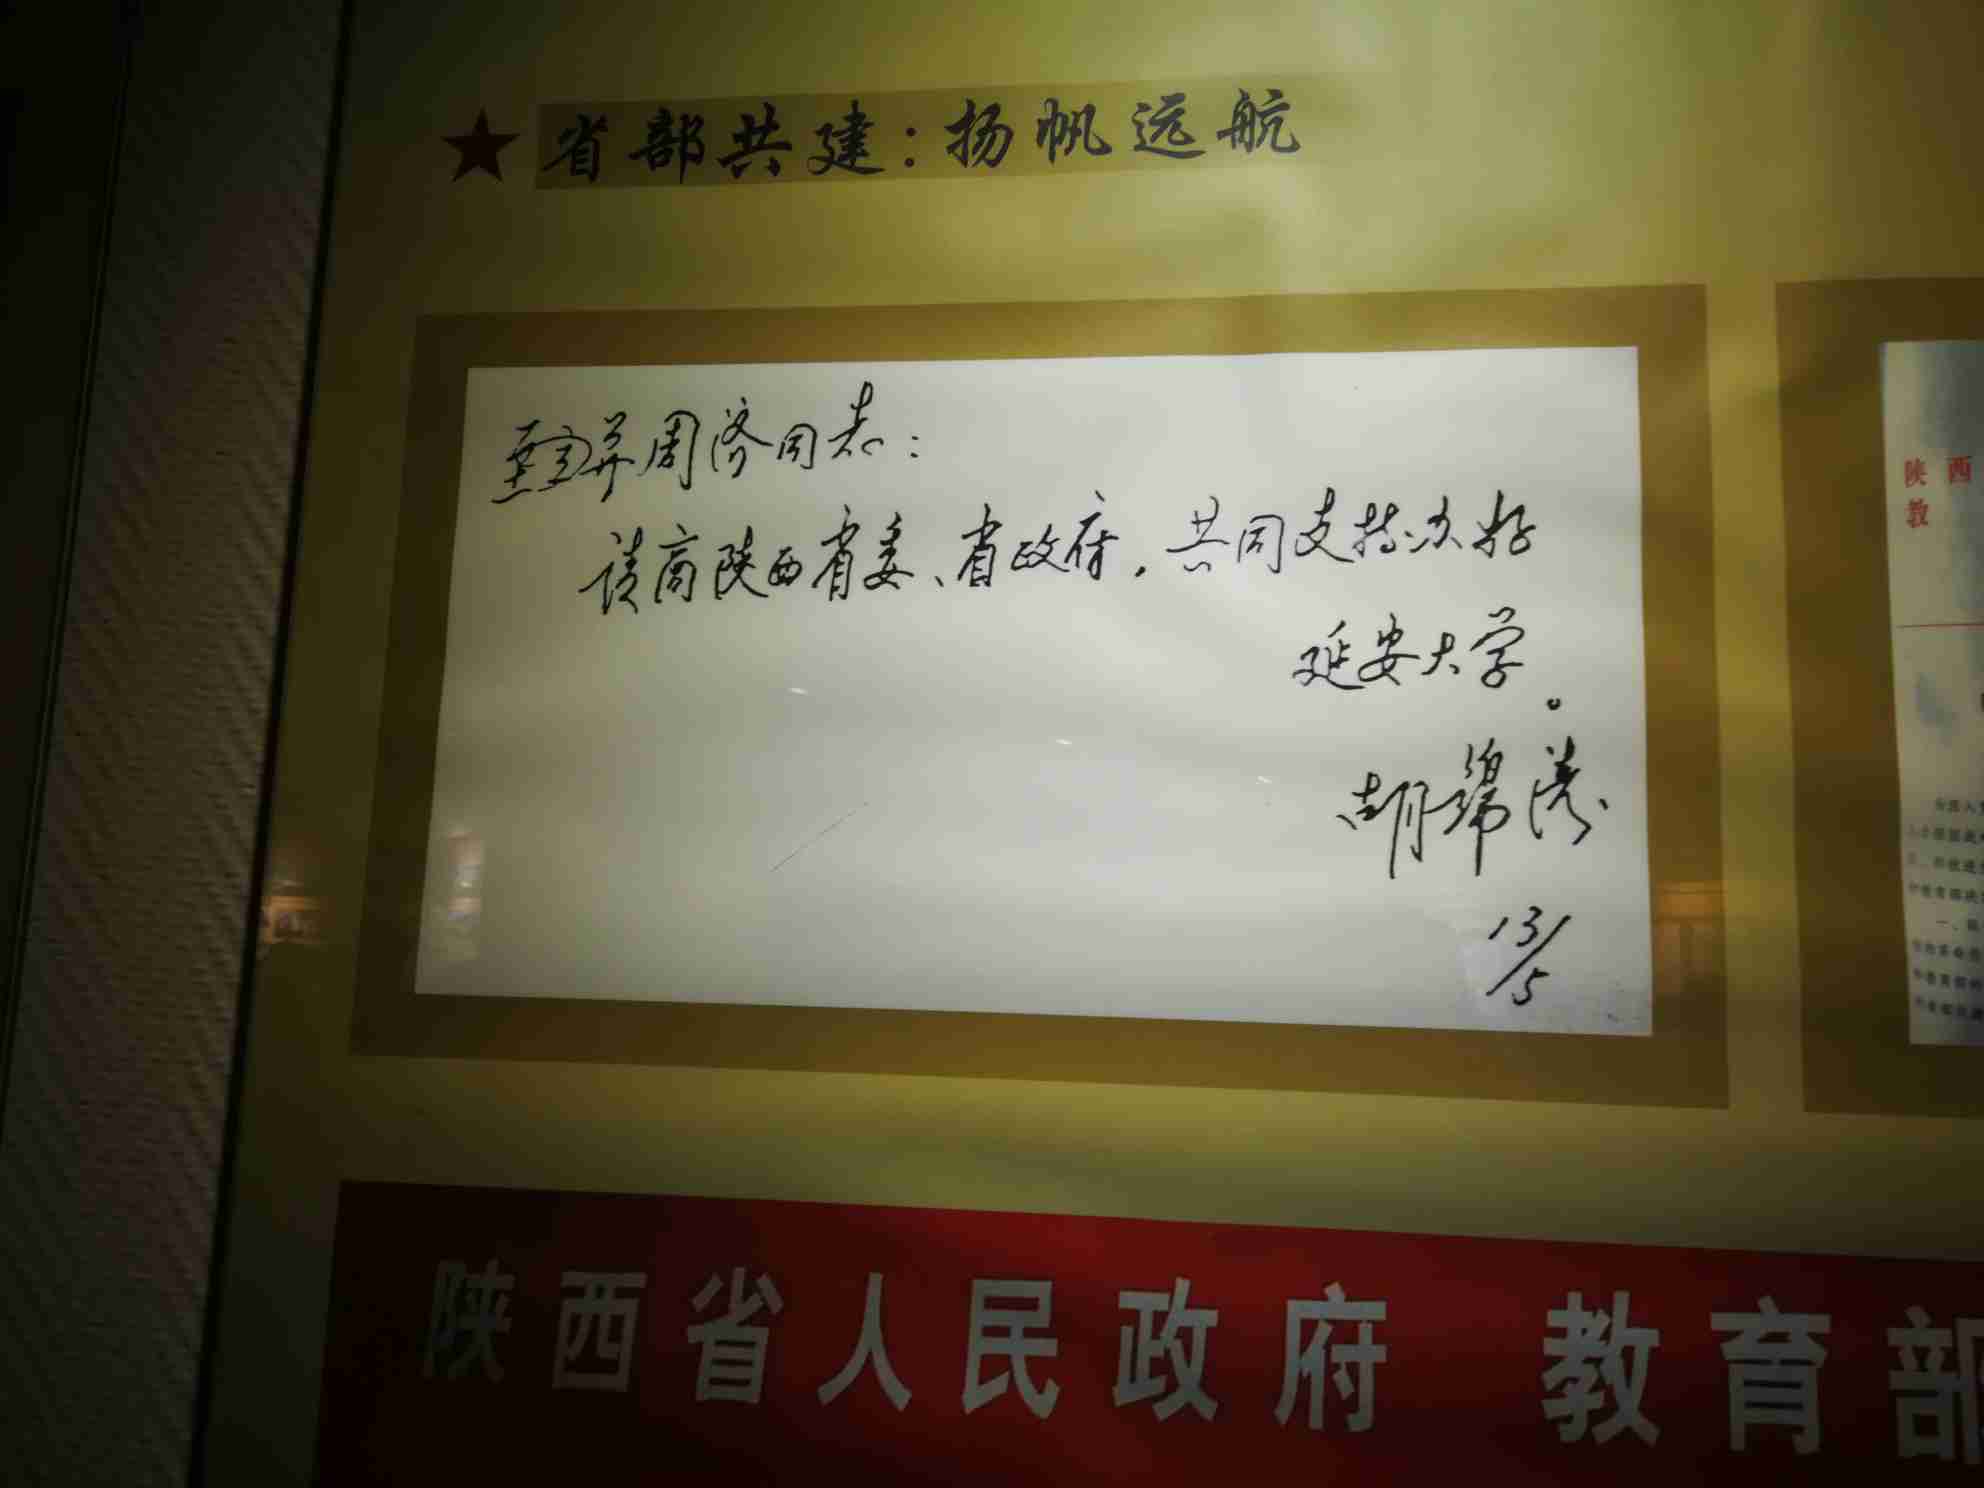 ★省部共建：扬帆远航
至立并周济同志：
请商陕西省委、省政府，共同支持办好
延安大学。
胡锦涛
13/5
陕西
教
陕西省人民政府 教育部